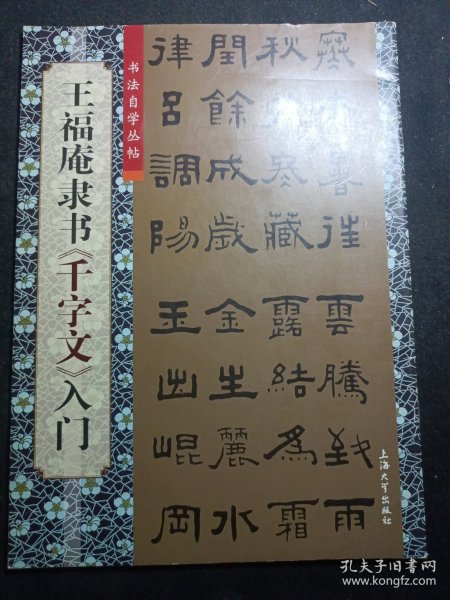 王福庵隶书《千字文》入门
书法自学丛帖
寒來暑往雲騰致雨
秋收冬藏露結為霜
閏餘成歲金生麗水
律呂調陽玉出崐岡
上海大学出版社
孔夫子旧书网
www.kongfz.com